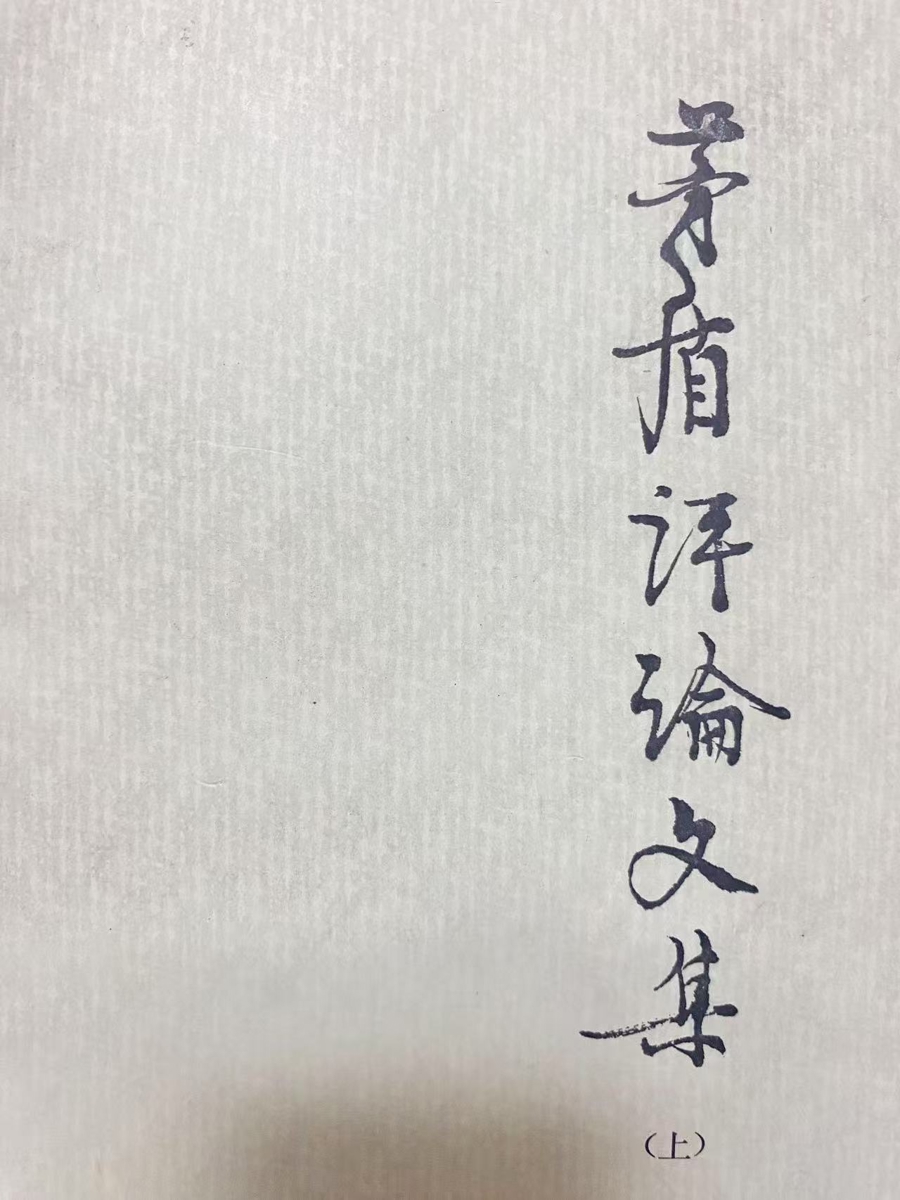 茅盾评論文集
（上）